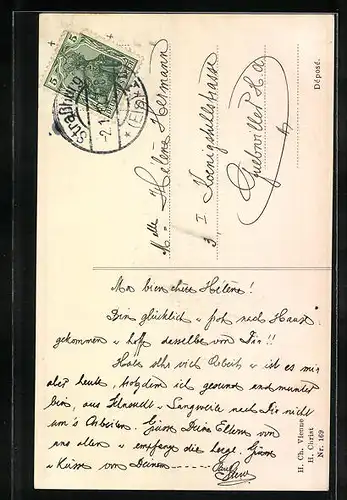 5
5
Straßburg
* (Els.) *
Melle Hélène Kolsmann
3, I Koenigshüllstrasse
Guebwiller H.a.
Déposé.
Ma bien chère Hélène!
Bin glücklich u froh nach Hause
gekommen u hoffe dasselbe von Dir!!
Habe sehr viel Arbeit u ist es mir
aber heute, trotzdem ich gesund und munter
bin, aus Sehnsucht u Langweile nach Dir nicht
um's Arbeiten. Grüsse Deine Eltern von
uns allen u empfange die herzl. Grüsse
u Küsse von Deinem
H. Ch. Vienne
H. Christ
Nr. 169